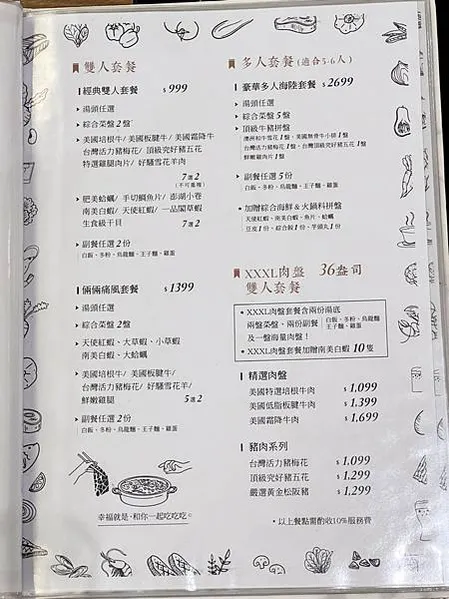 雙人套餐
經典雙人套餐 $999
湯頭任選
綜合菜盤2盤
美國培根牛/ 美國板腱牛/ 美國霜降牛
台灣活力豬梅花/ 頂級究好豬五花
特選雞腿肉片/ 好騷雪花羊肉
7選2
(不可重複)
肥美蛤蠣/ 手切鯛魚片/ 澎湖小卷
南美白蝦/ 天使紅蝦/ 一品閣草蝦
生食級干貝 7選2
副餐任選2份
白飯、多粉、烏龍麵、王子麵、雞蛋
倆倆痛風套餐 $1399
湯頭任選
綜合菜盤 2盤
天使紅蝦、大草蝦、小草蝦
南美白蝦、大蛤蠣
美國培根牛/ 美國板腱牛/
台灣活力豬梅花/ 好騷雪花羊/
鮮嫩雞腿 5選2
副餐任選2份
白飯、多粉、烏龍麵、王子麵、雞蛋
幸福就是,和你一起吃吃吃。
多人套餐 (適合5-6人)
豪華多人海陸套餐 $2699
湯頭任選
綜合菜盤 5盤
頂級牛豬拼盤
澳洲和牛雪花1盤、美國無骨牛小排1盤
台灣活力豬梅花1盤、台灣頂級究好豬五花1盤
鮮嫩雞肉片1盤
副餐任選5份
白飯、多粉、烏龍麵、王子麵、雞蛋
加贈綜合海鮮&火鍋料拼盤
天使紅蝦、南美白蝦、魚片、蛤蠣
豆皮1份、綜合餃1份、芋頭丸1份
XXXL肉盤 36盎司
雙人套餐
• XXXL肉盤套餐含兩份湯底
兩盤菜盤、兩份副餐 白飯、多粉、烏龍麵
王子麵、雞蛋
及一盤海量肉盤!
• XXXL肉盤套餐加贈南美白蝦 10隻
精選肉盤
美國特選培根牛肉 $1,099
美國低脂板腱牛肉 $1,399
美國霜降牛肉 $1,699
豬肉系列
台灣活力豬梅花 $1,099
頂級究好豬五花 $1,299
嚴選黃金松阪豬 $1,299
• 以上餐點需酌收10%服務費